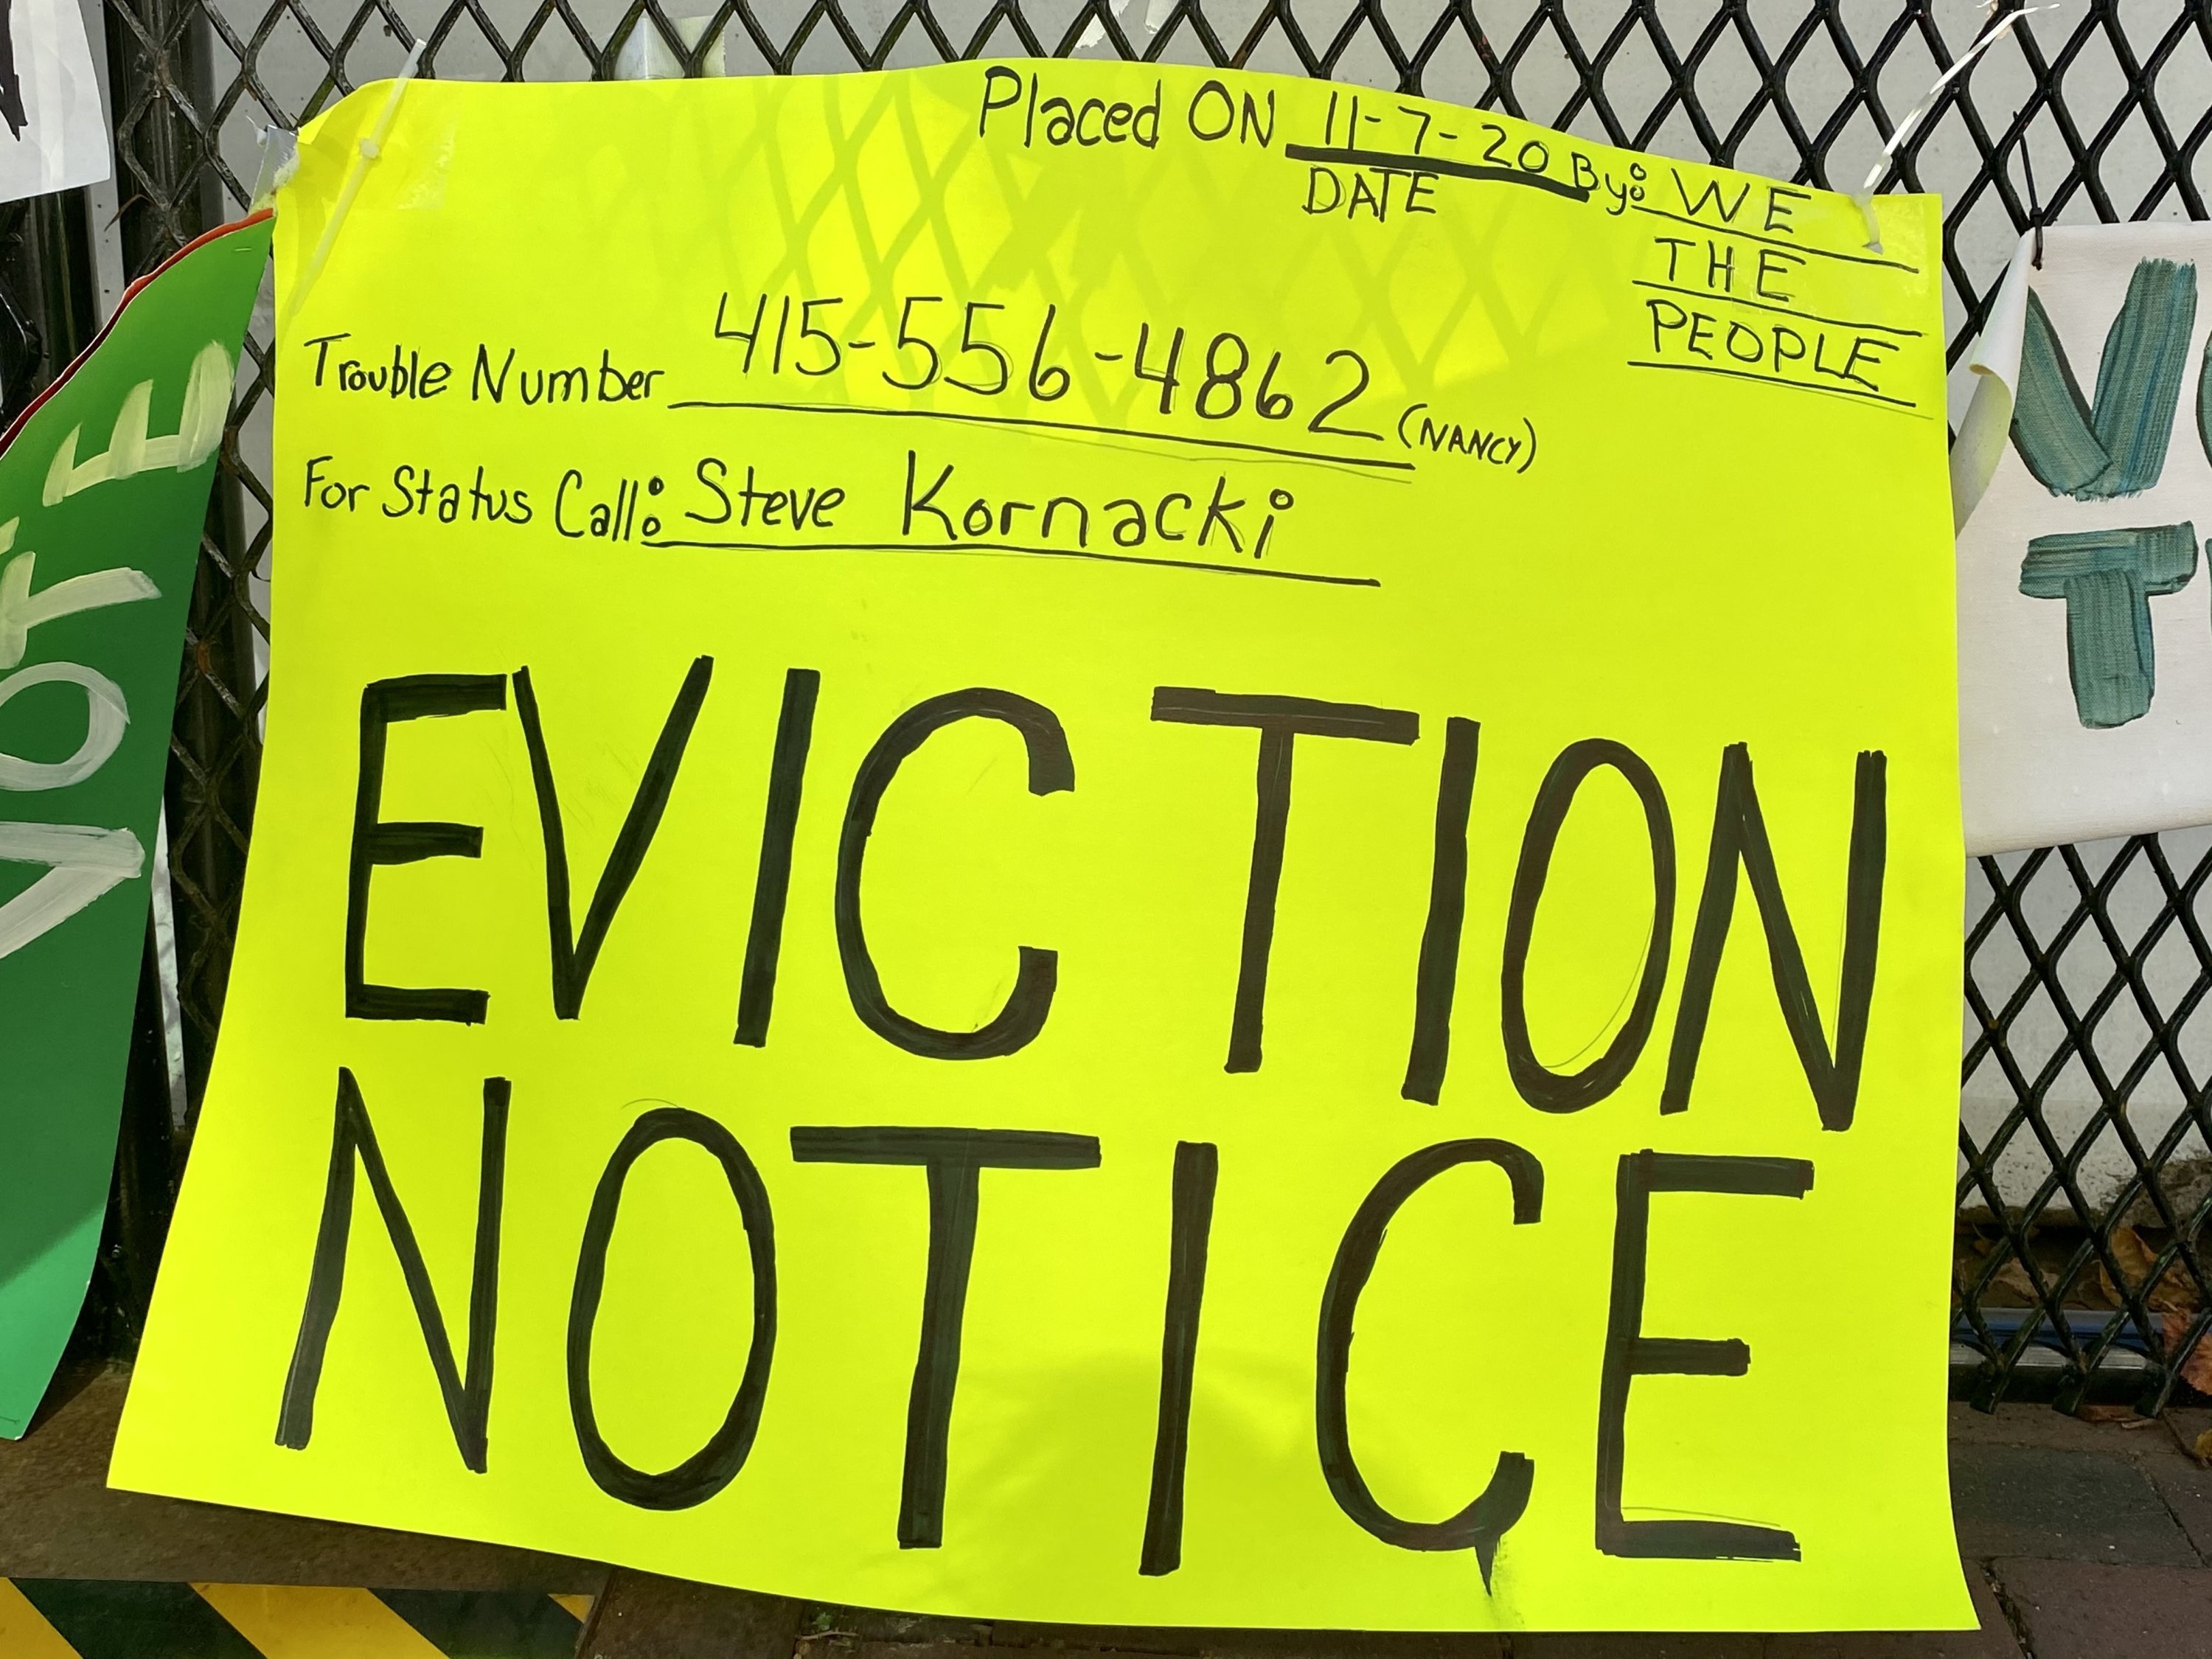 Placed ON 11-7-20 By: WE
DATE
THE
PEOPLE
Trouble Number 415-556-4862 (NANCY)
For Status Call: Steve Kornacki
EVICTION
NOTICE
VOTE